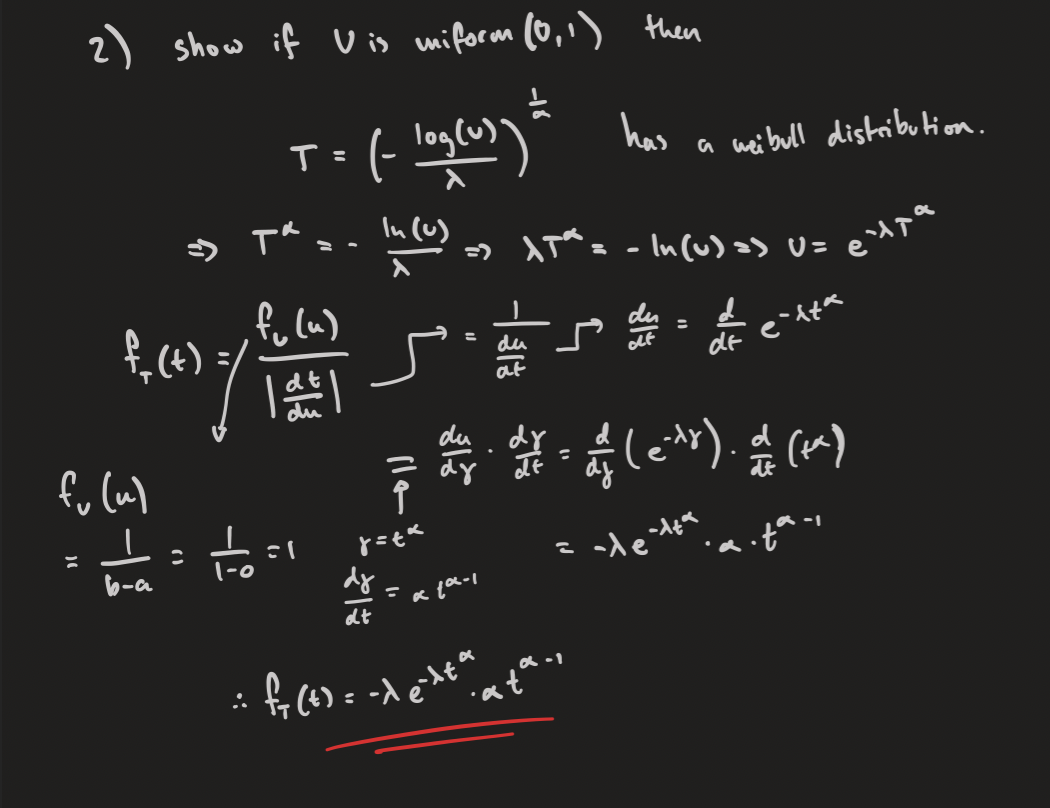 2) show if U is uniform (0,1) then
T = (- log(u)/λ)^(1/α) has a weibull distribution.
⇒ T^α = - ln(u)/λ ⇒ λT^α = - ln(u) ⇒ U = e^(-λT^α)
f_T(t) = f_U(u) / |dt/du| → = 1/(du/dt) → du/dt = d/dt e^(-λt^α)
= du/dγ · dγ/dt = d/dγ (e^(-λγ)) · d/dt (t^α)
f_U(u)
= 1/(b-a) = 1/(1-0) = 1
γ = t^α
dγ/dt = α t^(α-1)
= -λe^(-λt^α) · α · t^(α-1)
∴ f_T(t) = -λ e^(-λt^α) · α t^(α-1)